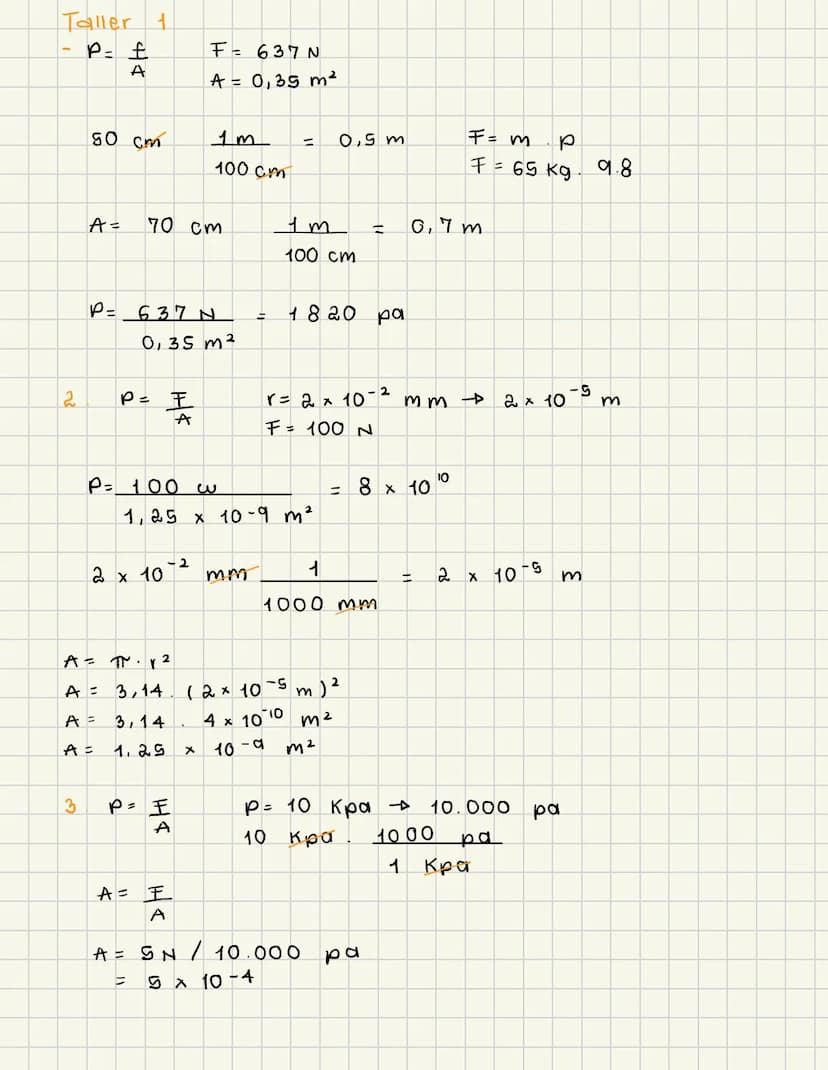 Taller 1
- P= f/A F= 637 N
A = 0,35 m²
50 cm 1 m/100 cm = 0,5 m F= m . p
F = 65 kg . 9.8
A= 70 cm 1 m/100 cm = 0,7 m
P= 637 N/0,35 m² = 1820 pa
2. P= F/A r= 2 x 10⁻² mm → 2 x 10⁻⁵ m
F= 100 N
P= 100 w/1,25 x 10-9 m² = 8 x 10¹⁰
2 x 10⁻² mm 1/1000 mm = 2 x 10⁻⁵ m
A= π. r²
A = 3,14. (2 x 10⁻⁵ m)²
A = 3,14 . 4 x 10⁻¹⁰ m²
A= 1,25 x 10⁻⁹ m²
3. P= F/A P= 10 Kpa → 10.000 pa
10 Kpa . 1000 pa/1 Kpa
A= F/A
A= 5N / 10.000 pa
= 5 x 10-4